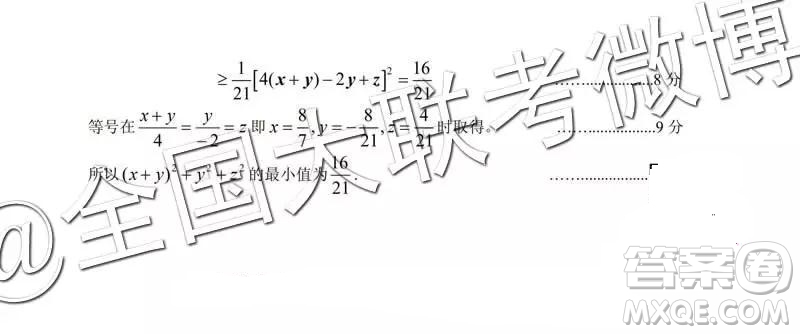 ≥ 1/21 [4(x+y)−2y+z]² = 16/21 ……................8 分
等号在 (x+y)/4 = y/−2 = z 即 x = 8/7, y = −8/21, z = 4/21 时取得。 ……................9 分
所以 (x+y)² + y² + z² 的最小值为 16/21. ……................
@全国大联考微博
答案卷
MXQE.COM